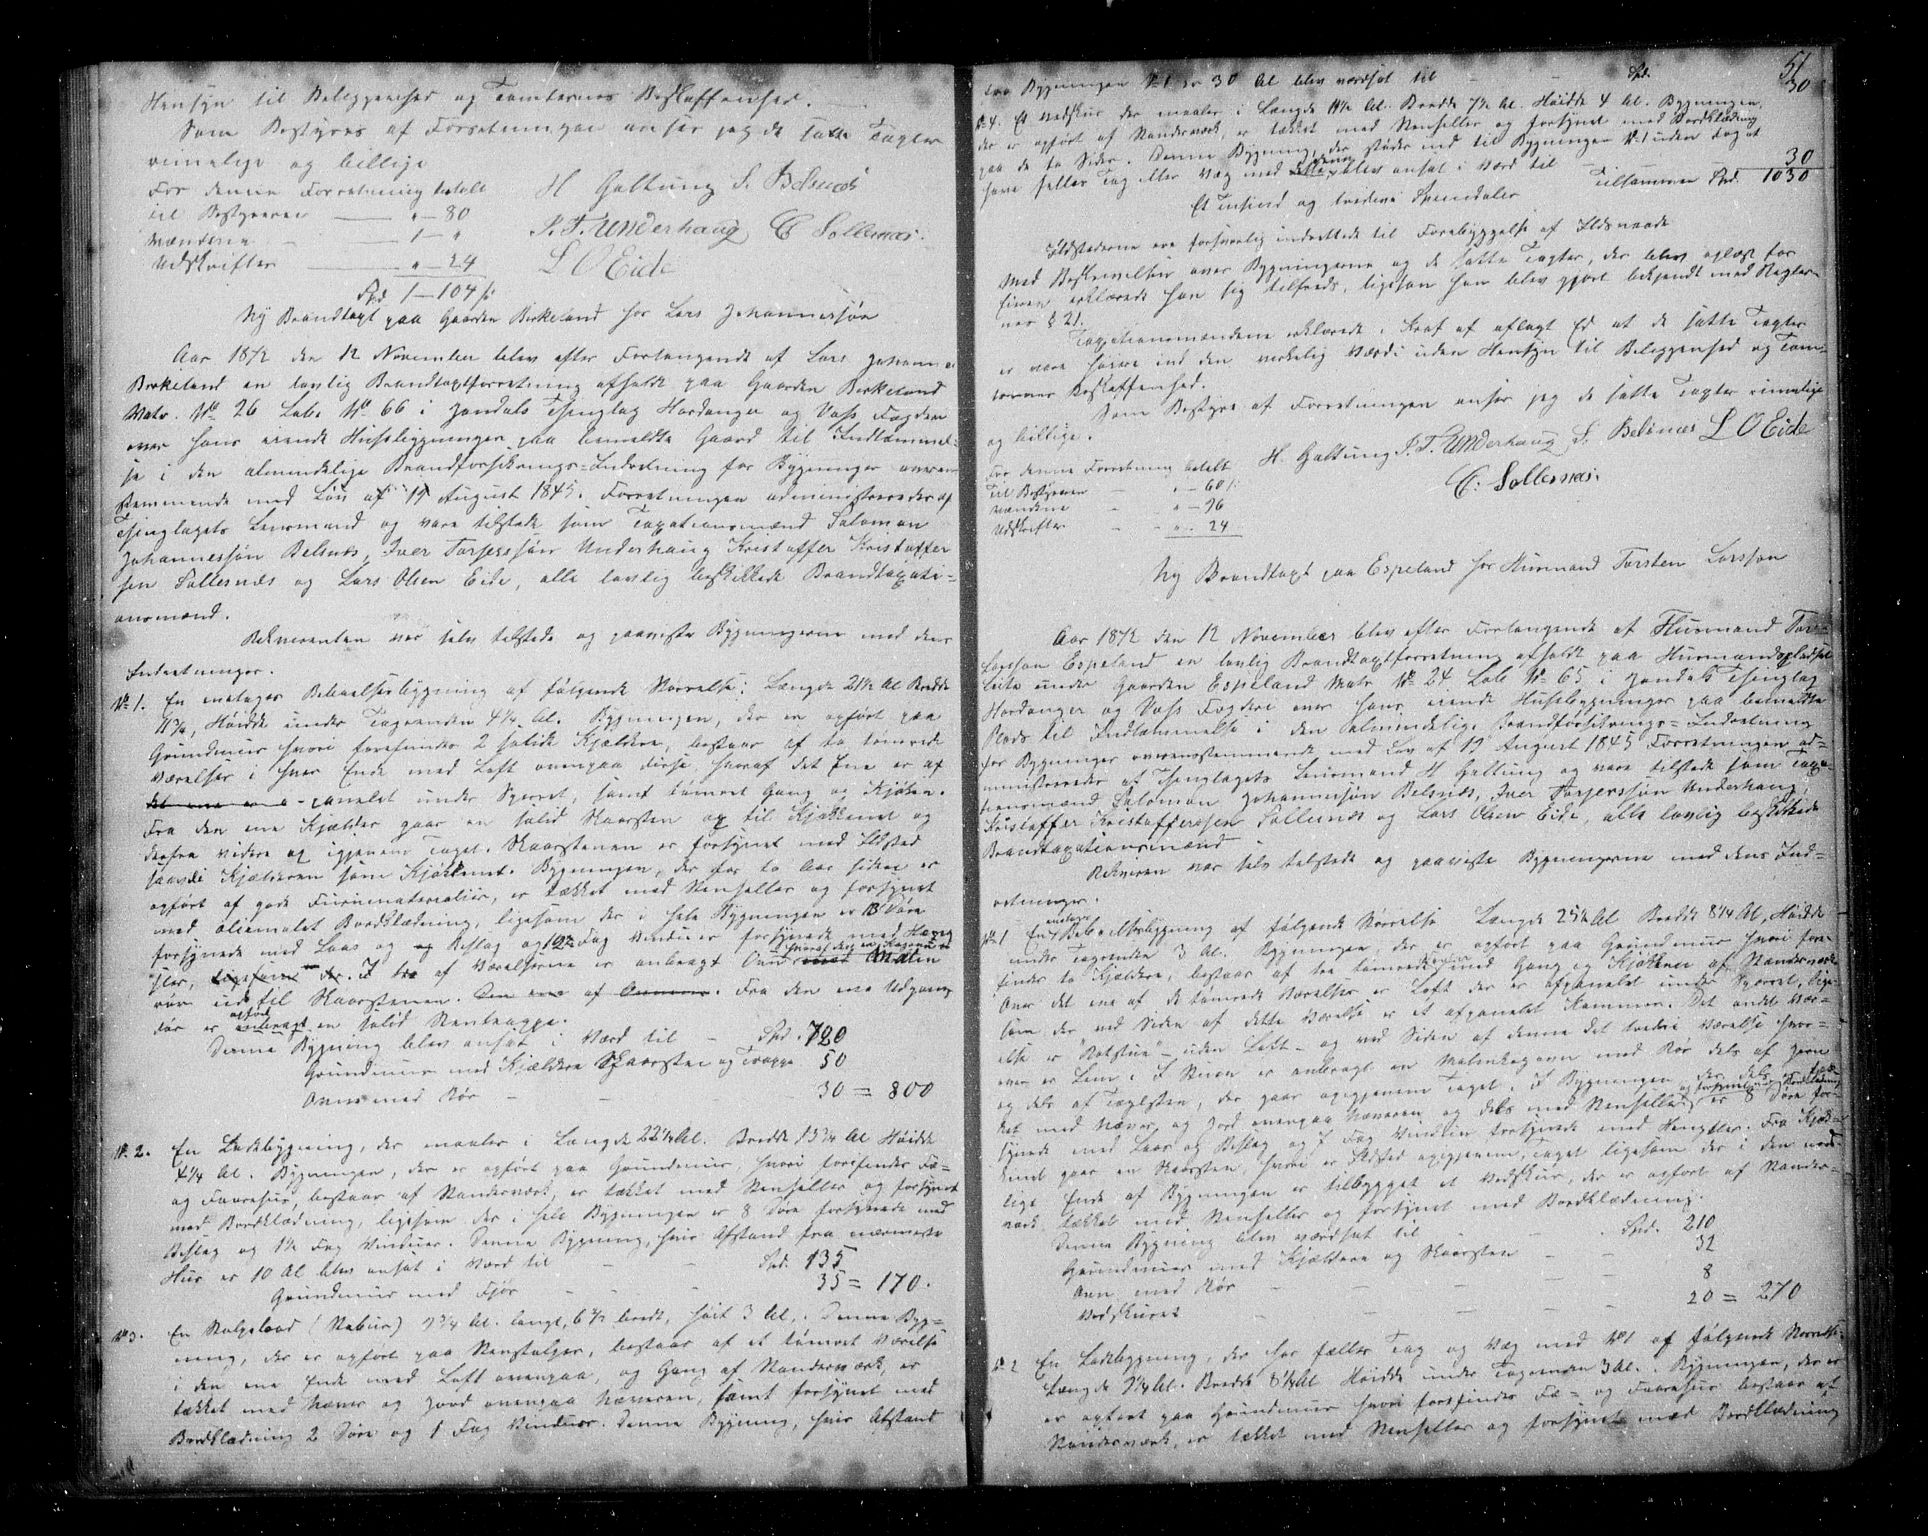 Hensyn til Beliggenhed og Tomternes Beskaffenhed.
Som Bestyrer af Forretningen anser jeg de satte Taxter
rimelige og billige
For denne Forretning betalt
til Bestyreren " – 80
Mændene 1 – "
Udskrifter " – 24
Spd 1 – 104 s
H Galtung S. Belsnæs
I. T. Underhaug C Sollesnæs.
L O Eide
Ny Brandtaxt paa Gaarden Birkeland for Lars Johannessøn
Aar 1872 den 12 November blev efter Forlangende af Lars Johannes
Birkeland en lovlig Brandtaxtforretning afholdt paa Gaarden Birkeland
Matr. No 26 Lob. No 66 i Jondals Thinglag Hardanger og Voss Fogderi
over hans eiende Husebygninger paa bemeldte Gaard til Indlemmel-
se i den almindelige Brandforsikrings-Indretning for Bygninger overen-
stemmende med Lov af 19 August 1845. Forretningen administreredes af
Thinglagets Lensmand og vare tilstede som Taxationsmænd Salomon
Johannessøn Belsnæs, Iver Torjerssøn Underhaug Kristoffer Kristoffer
sen Sollesnæs og Lars Olsen Eide, alle lovlig beskikkede Brandtaxati-
onsmænd.
Rekvirenten var selv tilstede og paaviste Bygningerne med dens
Indretninger.
No 1. En etages Beboelsesbygning af følgende Størrelse: Længde 21½ Al Bredde
11¾, Høide under Tagrenden 4¼ Al. Bygningen, der er opført paa
Grundmur hvori forefindes 2 solide Kjældere, bestaar af to tømrede
Værelser i hver Ende med Loft ovenpaa disse, hvoraf det Ene er af
panelet under Sperret, samt tømret Gang og Kjøken.
Fra den ene Kjælder gaar en solid Skorsten op til Kjøkkenet og
derfra videre op igjennem Taget. Skorstenen er forsynet med Ildsted
saavel i Kjælderen som Kjøkkenet. Bygningen, der for to Aar siden er
opført af gode Furumaterialier, er tækket med Stenheller og forsynet
med oliemalet Bordklædning, ligesom der i hele Bygningen er 13 Døre
forsynede med Laas og Beslag og 12 Fag Vinduer forsynede med Heng
sler, I to af Værelserne er anbragt Ovn
rør inde til Skorstenen. Fra den ene Udgangs
dør er opført en solid Stentrappe.
Denne Bygning blev ansat i Værd til – Spd. 720
Grundmur med Kjældere Skorsten og Trappe 50
Ovn med Rør – 30 = 800
No 2. En Ladebygning, der maaler i Længde 22¼ Al. Bredde 13¾ Al Høide
4¼ Al. Bygningen, der er opført paa Grundmur, hvori forefindes Fæ-
og Faarehus, bestaar af Standerværk, er tækket med Stenheller og forsynet
med Bordklædning, ligesom der i hele Bygningen er 8 Døre forsynede med
Beslag og 1½ Fag Vinduer. Denne Bygning, hvis Afstand fra nærmeste
Hus er 10 Al blev ansat i Værd til – Spd. 135
Grundmur med Fjøs – 35 = 170.
No 3. En Stolpebod (Stabur) 7¾ Al. langt, 6½ bredt, høit 3 Al. Denne Byg-
ning, der er opført paa Stenstolper, bestaar af et tømret Værelse
i den ene Ende med Loft ovenpaa, og Gang af Standerværk, er
tækket med Næver og Jord ovenpaa Næveren, samt forsynet med
Bordklædning 2 Døre og 1 Fag Vinduer. Denne Bygning, hvis Afstand
51
fra Bygningen No 1 er 30 Al blev værdsat til – Spd. 30
No 4. Et Vedskur der maaler i Længde 11½ Al. Bredde 7½ Al. Høide 4 Al. Bygningen,
der er opført af Standerværk, er tækket med Stenheller og forsynet med Bordklædning
paa de to Sider. Denne Bygning, der støder ind til Bygningen No 1 uden dog at
have fælles Tag eller Væg med denne blev ansat i Værd til 30
Tilsammen Spd. 1030
Et Tusind og tredive Speciedaler
Ildstederne ere forsvarlig indrettede til Forebyggelse af Ildsvaade
Med Beskrivelsen over Bygningerne og de satte Taxter, der blev oplæst for
Eieren erklærede han sig tilfreds, ligesom han blev gjort bekjendt med Regler-
nes § 21.
Taxationsmændene erklærede i Kraf af aflagt Ed at de satte Taxter
ei vare høiere end den virkelige Værdi uden Hensyn til Beliggenhed og Tom-
ternes Beskaffenhed.
Som Bestyrer af Forretningen anser jeg de satte Taxter rimelige
og billige.
H. Galtung I. T. Underhaug S. Belsnæs L O Eide
C. Sollesnæs.
For denne Forretning betalt
Til Bestyreren – " – 60 s
Mændene – " – 96
Udskrifter – " – 24
Ny Brandtaxt paa Espeland for Husmand Torsten Larssøn
Aar 1872 den 12 November blev efter Forlangende af Husmand Tor-
Larssøn Espeland en lovlig Brandtaxtforretning afholdt paa Husmandspladset
Leite under Gaarden Espeland Matr. No 24 Lob No 65 i Jondals Thinglag
Hardanger og Voss Fogderi over hans eiende Husebygninger paa bemeldte
Plads til Indlemmelse i den Almindelige Brandforsikrings-Indretning
for Bygninger overensstemmende med Lov af 19 August 1845 Forretningen ad-
ministreredes af Thinglagets Lensmand H Galtung og vare tilstede som Taxa-
tionsmænd Salomon Johannessøn Belsnæs, Iver Torjerssøn Underhaug,
Kristoffer Kristoffersen Sollesnæs og Lars Olsen Eide, alle lovlig beskikkede
Brandtaxationsmænd
Rekviren var selv tilstede og paaviste Bygningerne med dens Ind-
retninger.
No 1 En etages Beboelsesbygning af følgende Størrelse Længde 25½ Al Bredde 8¼ Al, Høide
under Tagrenden 3 Al. Bygningen, der er opført paa Grundmur hvori fore-
findes to Kjældere, bestaar af tre tømrede Værelser med Gang og Kjøkken af Standerværk
Over det ene af de tømrede Værelser er Loft der er afpanelet under Sperret, lige-
som der ved Siden af dette Værelse er et afpanelet Kammer. Det andet Vær-
else er "Røkstue" – uden Loft – og ved Siden af denne det tredie Værelse hvor-
over er Lem. I Stuen er anbragt en Malmkogovn med Rør dels af Jern
og dels af Teglsten, der gaar op igjennem Taget. I Bygningen der dels er tæk-
ket med Næver og Jord ovenpaa Næveren og dels med Stenheller og forsynet med Bordklædning er 8 Døre for-
synede med Laas og Beslag og 7 Fag Vinduer forsynede med Hengsler. Fra Kjøk-
kenet gaar en Skorsten, hvori er Ildsted op igjennem Taget ligesom der i den nord-
lige Ende af Bygningen er tilbygget et Vedskur, der er opført af Stander-
værk tækket med Stenheller og forsynet med Bordklædning.
Denne Bygning blev værdsat til – Spd. 210
Grundmur med 2 Kjældere og Skorsten – 32
Ovn med Rør – 8
Vedskuret – 20 = 270
No 2 En Ladebygning, der har fælles Tag og Væg med No 1 af følgende Størrelse:
Længde 9¼ Al. Bredde 8¼ Al Høide under Tagrenden 3 Al. Bygningen, der er
er opført paa Grundmur hvori forefindes Fæ- og Faarehus bestaar af
Standerværk, er tækket med Stenheller og forsynet med Bordklædning